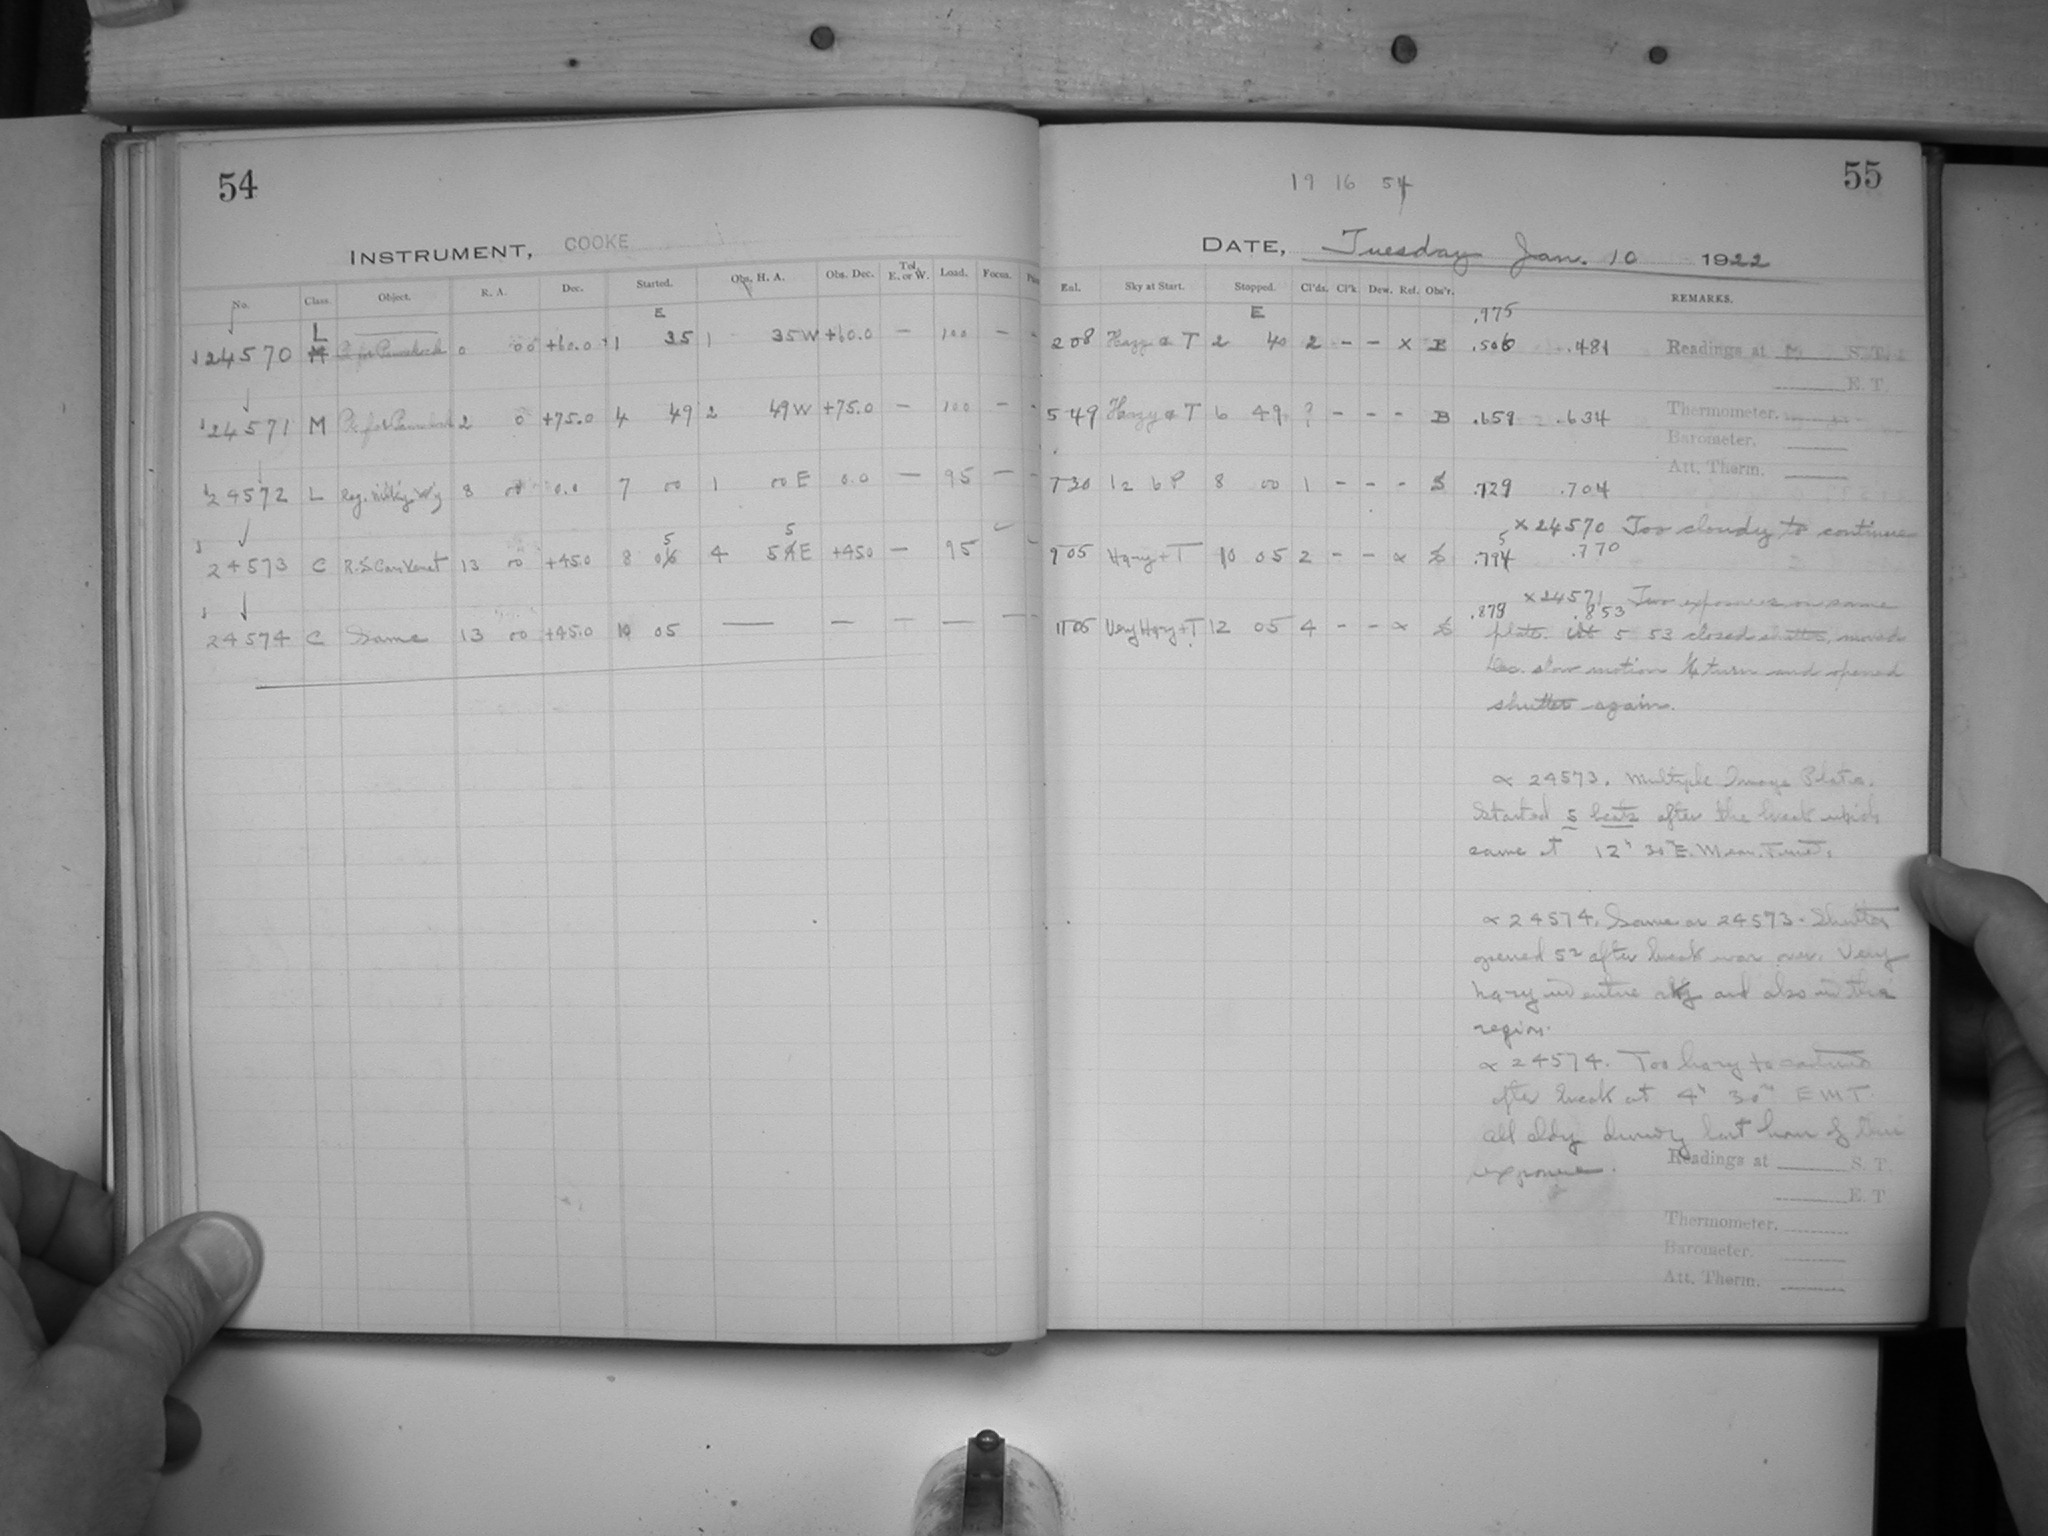 54
INSTRUMENT, COOKE
No. Class. Object. R. A. Dec. Started. Obs. H. A. Obs. Dec. Tel. E. or W. Load. Focus.
E
L
24570 M 0 00 +60.0 1 35 1 35 W +60.0 — 100 – -
24571 M 2 0 +75.0 4 49 2 49 W +75.0 — 100 – -
24572 L Reg. Milky Wy 8 00 0.0 7 00 1 00 E 0.0 — 95 — -
5 5
24573 C 13 00 +45.0 8 06 4 54 E +45.0 — 95
24574 C Same 13 00 +45.0 10 05 — — — — —
55
19 16 54
DATE, Tuesday Jan. 10 1922
Sky at Start. Stopped. Cl'ds. Cl'k. Dew. Ref. Obs'r. REMARKS.
E .975
2 08 Hazy & T 2 40 2 - - x B .506 .481 Readings at M S. T.
E. T.
5 49 Hazy & T 6 49 ? - - - B .659 .634 Thermometer.
Barometer.
Att. Therm.
7 30 12 6 P 8 00 1 - - - S .729 .704
x 24570 Too cloudy to continue
5
9 05 Hazy + T 10 05 2 - - x S .794 .770
x 24571 Two exposures on same
11 05 Very Hazy + T 12 05 4 - - x S .879 .853
plate. At 5 53 closed shutter, moved
Dec. slow motion turn and opened
shutter again.
x 24573. Multiple Image Plate.
Started 5 beats after the break which
came at 12h 30m E. Mean. Time.
x 24574. Same as 24573. Shutter
opened after break was over. Very
hazy in entire sky and also in this
region.
x 24574. Too hazy to continue
after break at 4h 30m E M T.
All cldy during last hour of this
exposure.
Readings at S. T.
E. T
Thermometer.
Barometer.
Att. Therm.